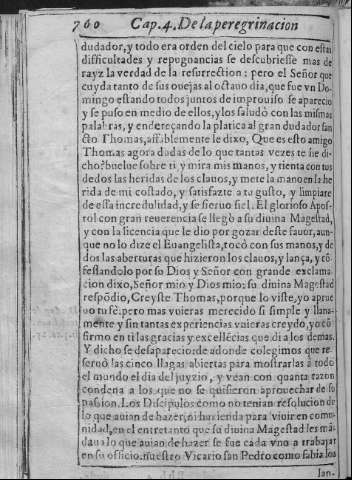 760 Cap.4. De la peregrinacion
dudador, y todo era orden del cielo para que con estas
difficultades y repugnancias se descubriesse mas de
rayz la verdad de la resurrection: pero el Señor que
cuyda tanto de sus ouejas al octauo dia, que fue vn Do-
mingo estando todos juntos de improuiso se aparecio
y se puso en medio de ellos, y los saludò con las mismas
palabras, y endereçando la platica al gran dudador san
cto Thomas, affablemente le dixo, Que es esto amigo
Thomas agora dudas de lo que tantas vezes te he di-
cho? buelue sobre ti y mira mis manos, y tienta con tus
dedos las heridas de los clauos, y mete la mano en la he
rida de mi costado, y satisfazte a tu gusto, y limpiare
de essa incredulidad, y se sieruo fiel. El glorioso Apos-
tol con gran reuerencia se llegò a su diuina Magestad,
y con la licencia que le dio por gozar deste fauor, aun-
que no lo dize el Euangelista, tocò con sus manos, y de
dos las aberturas que hizieron los clauos, y lança, y cõ-
fessandolo por su Dios y Señor con grande exclama-
cion dixo, Señor mio y Dios mio; su diuina Magestad
respõdio, Creyste Thomas, porque lo viste, yo aprue
uo tu fè, pero mas vuieras merecido si simple y llana-
mente y sin tantas experiencias vuieras creydo, yo cõ
firmo en ti las gracias y excellẽcias que di a los demas.
Y dicho se desaparecio: de adonde colegimos que re-
seruò las cinco llagas abiertas para mostrarlas à todo
el mundo el dia del juyzio, y vean con quanta razon
condena a los que no se quisieron aprouechar de so
passion. Los Discipulos como no tenian resolucion de
lo que auian de hazer, ni hazienda para viuir en comu-
nidad, en el entretanto que su diuina Magestad les mã-
daua lo que auian de hazer se fue cada vno a trabajar
en su officio. nuestro Vicario san Pedro como sabia los
lan-